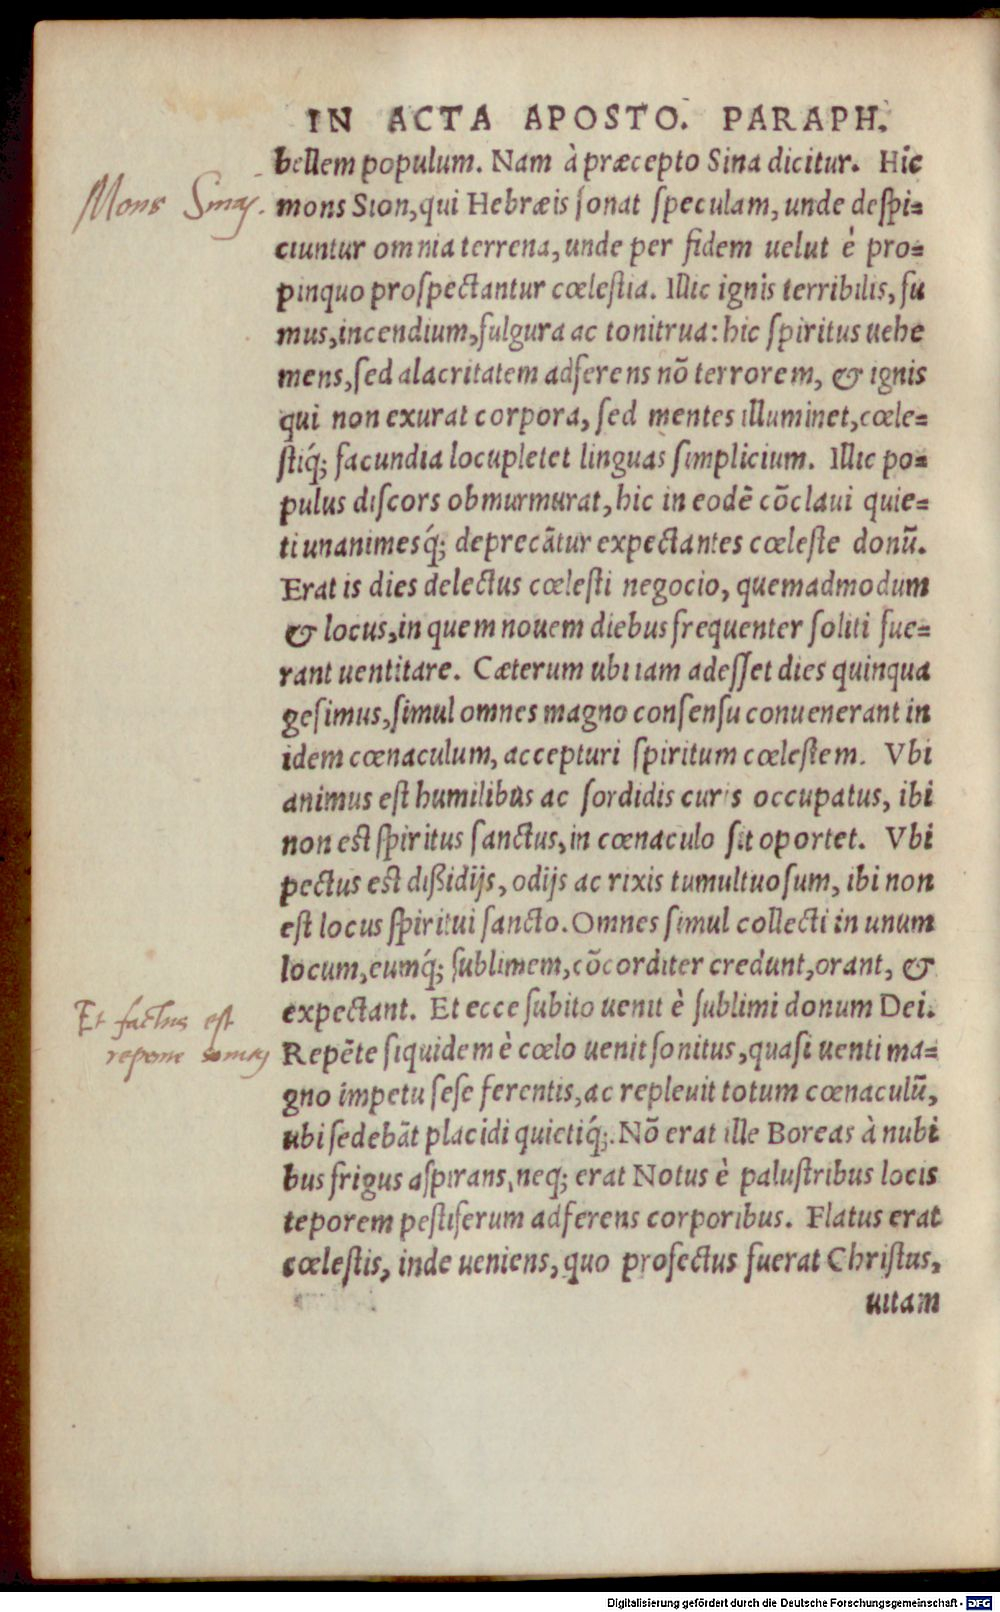 IN ACTA APOSTO. PARAPH.
bellem populum. Nam à præcepto Sina dicitur. Hic
Mons Sinay.
mons Sion, qui Hebræis sonat speculam, unde despi=
ciuntur omnia terrena, unde per fidem uelut è pro=
pinquo prospectantur cœlestia. Illic ignis terribilis, fu
mus, incendium, fulgura ac tonitrua: hic spiritus uehe
mens, sed alacritatem adferens nō terrorem, & ignis
qui non exurat corpora, sed mentes illuminet, cœle=
stiq́; facundia locupletet linguas simplicium. Illic po=
pulus discors obmurmurat, hic in eodē cōclaui quie=
ti unanimesq́; deprecātur expectantes cœleste donū.
Erat is dies delectus cœlesti negocio, quemadmodum
& locus, in quem nouem diebus frequenter soliti fue=
rant uentitare. Cæterum ubi iam adesset dies quinqua
gesimus, simul omnes magno consensu conuenerant in
idem cœnaculum, accepturi spiritum cœlestem. Vbi
animus est humilibus ac sordidis curis occupatus, ibi
non est spiritus sanctus, in cœnaculo sit oportet. Vbi
pectus est dißidijs, odijs ac rixis tumultuosum, ibi non
est locus spiritui sancto. Omnes simul collecti in unum
locum, eumq́; sublimem, cōcorditer credunt, orant, &
expectant. Et ecce subito uenit è sublimi donum Dei.
Et factus est
Repēte siquidem è cœlo uenit sonitus, quasi uenti ma=
gno impetu sese ferentis, ac repleuit totum cœnaculū,
ubi sedebāt placidi quietiq́;. Nō erat ille Boreas à nubi
bus frigus aspirans, neq; erat Notus è palustribus locis
teporem pestiferum adferens corporibus. Flatus erat
cœlestis, inde ueniens, quo profectus fuerat Christus,
uitam
Digitalisierung gefördert durch die Deutsche Forschungsgemeinschaft - DFG